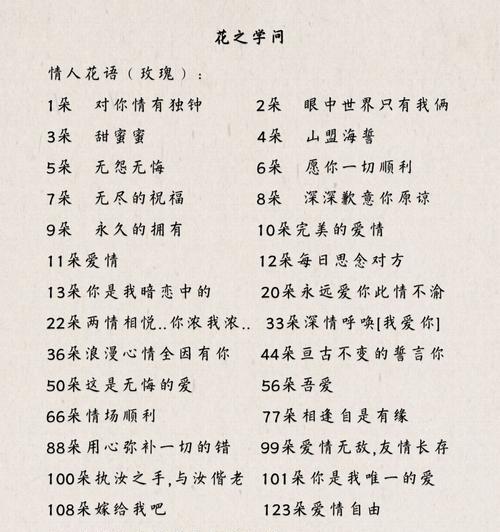 花之学问
情人花语（玫瑰）：
1朵 对你情有独钟 2朵 眼中世界只有我俩
3朵 甜蜜蜜 4朵 山盟海誓
5朵 无怨无悔 6朵 愿你一切顺利
7朵 无尽的祝福 8朵 深深歉意你原谅
9朵 永久的拥有 10朵完美的爱情
11朵爱情 12朵每日思念对方
13朵你是我暗恋中的 20朵永远爱你此情不渝
22朵两情相悦..你浓我浓.. 33朵深情呼唤[我爱你]
36朵浪漫心情全因有你 44朵亘古不变的誓言你
50朵这是无悔的爱 56朵吾爱
66朵情场顺利 77朵相逢自是有缘
88朵用心弥补一切的错 99朵爱情无敌,友情长存
100朵执汝之手,与汝偕老 101朵你是我唯一的爱
108朵嫁给我吧 123朵爱情自由